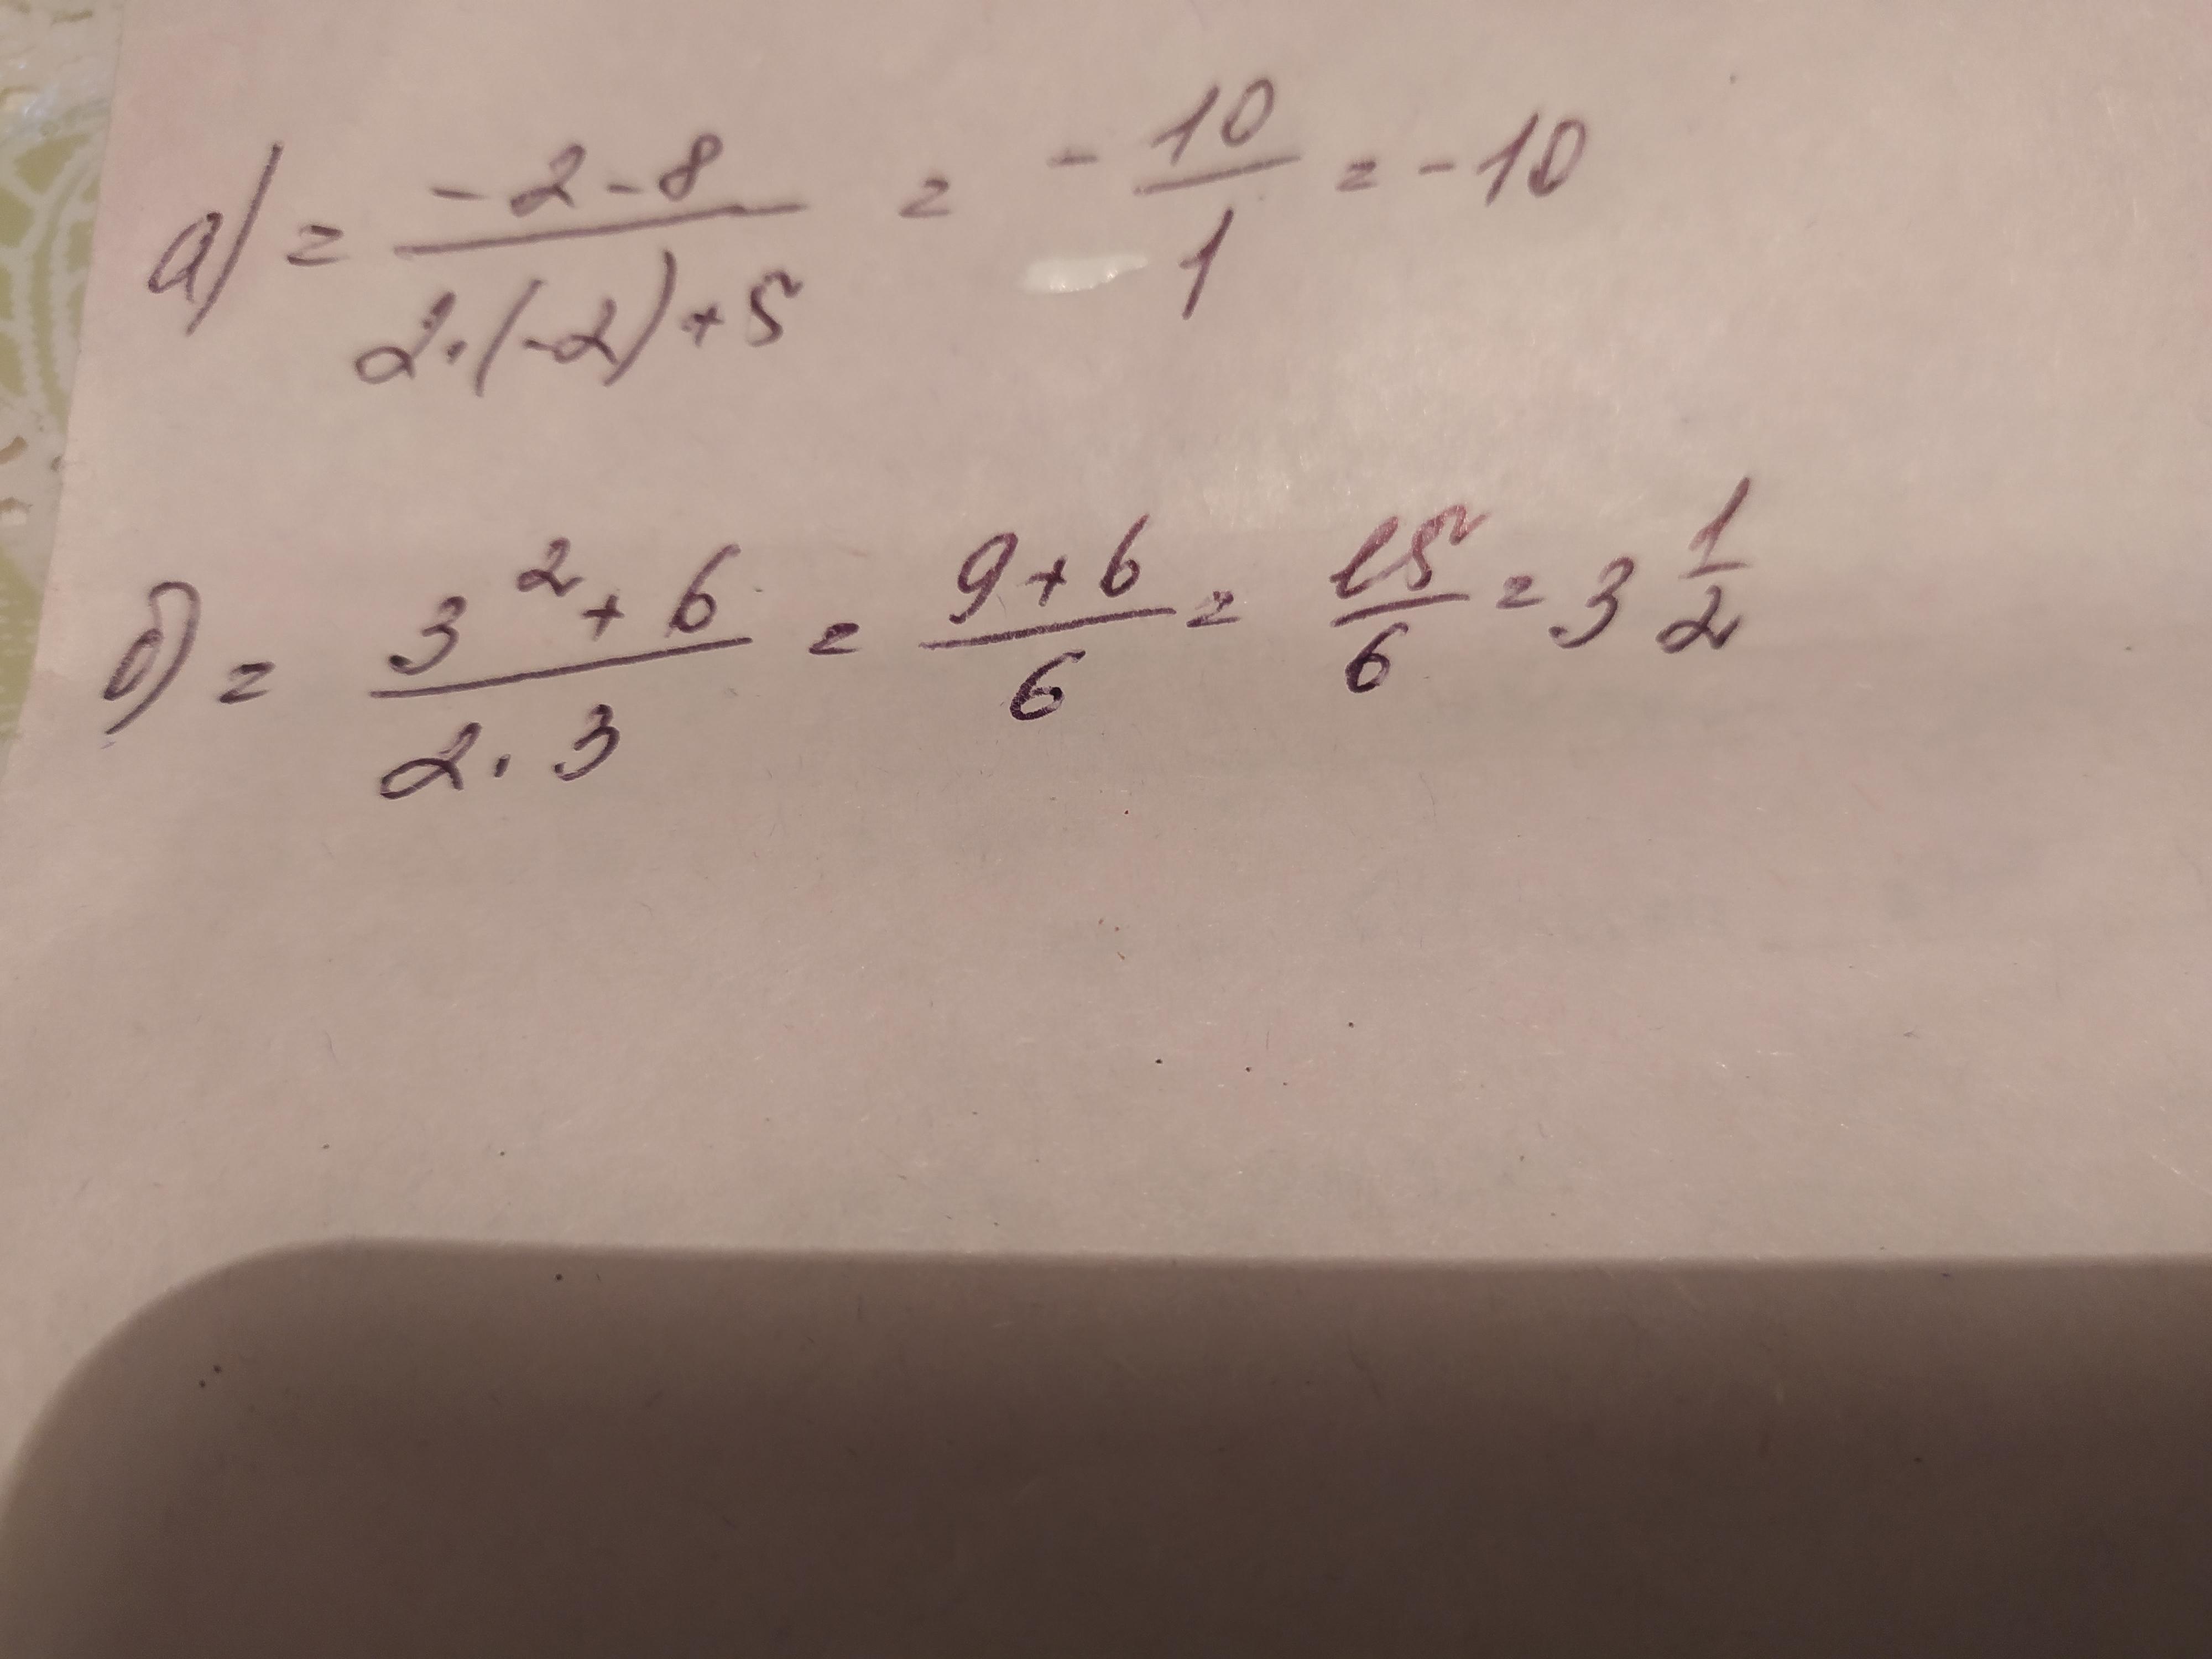 а) = (-2-8)/(2·(-2)+5) = -10/1 = -10
б) = (3²+6)/(2·3) = (9+6)/6 = 15/6 = 3 1/2